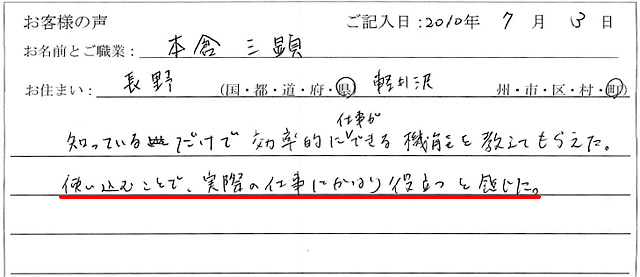 お客様の声 ご記入日:2010年 7 月 13 日
お名前とご職業: 本倉 三顕
お住まい: 長野 (国・都・道・府・県) 軽井沢 州・市・区・村・町
仕事が
知っているだけで 効率的にできる 機能を教えてもらえた。
使い込むことで、実際の仕事にかなり役立つと感じた。